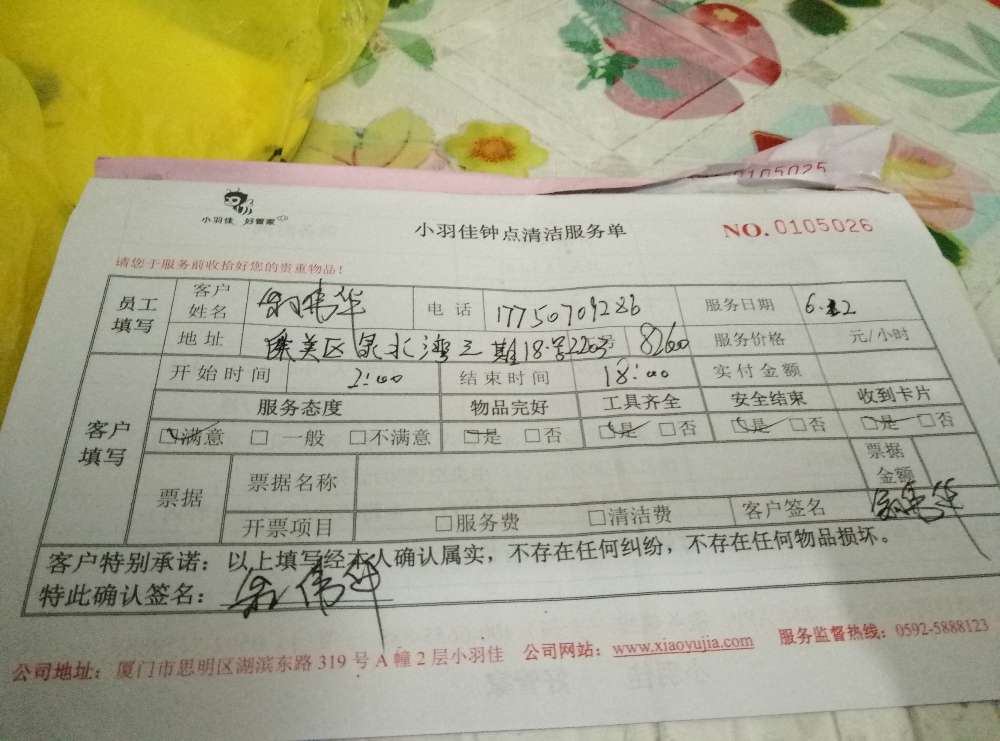 0105025
小羽佳 好管家
小羽佳钟点清洁服务单
NO. 0105026
请您于服务前收拾好您的贵重物品！
员工填写 客户姓名 伟华 电话 17750709286 服务日期 6.22
地址 集美区泉水湾三期18号220号 服务价格 元/小时
客户填写 开始时间 2:00 结束时间 18:00 实付金额
服务态度 物品完好 工具齐全 安全结束 收到卡片
□满意 □一般 □不满意 □是 □否 □是 □否 □是 □否 □是 □否
票据 票据名称 票据金额
开票项目 □服务费 □清洁费 客户签名 伟华
客户特别承诺：以上填写经本人确认属实，不存在任何纠纷，不存在任何物品损坏。
特此确认签名： 伟华
公司地址：厦门市思明区湖滨东路 319 号 A 幢 2 层小羽佳 公司网站：www.xiaoyujia.com 服务监督热线：0592-5888123